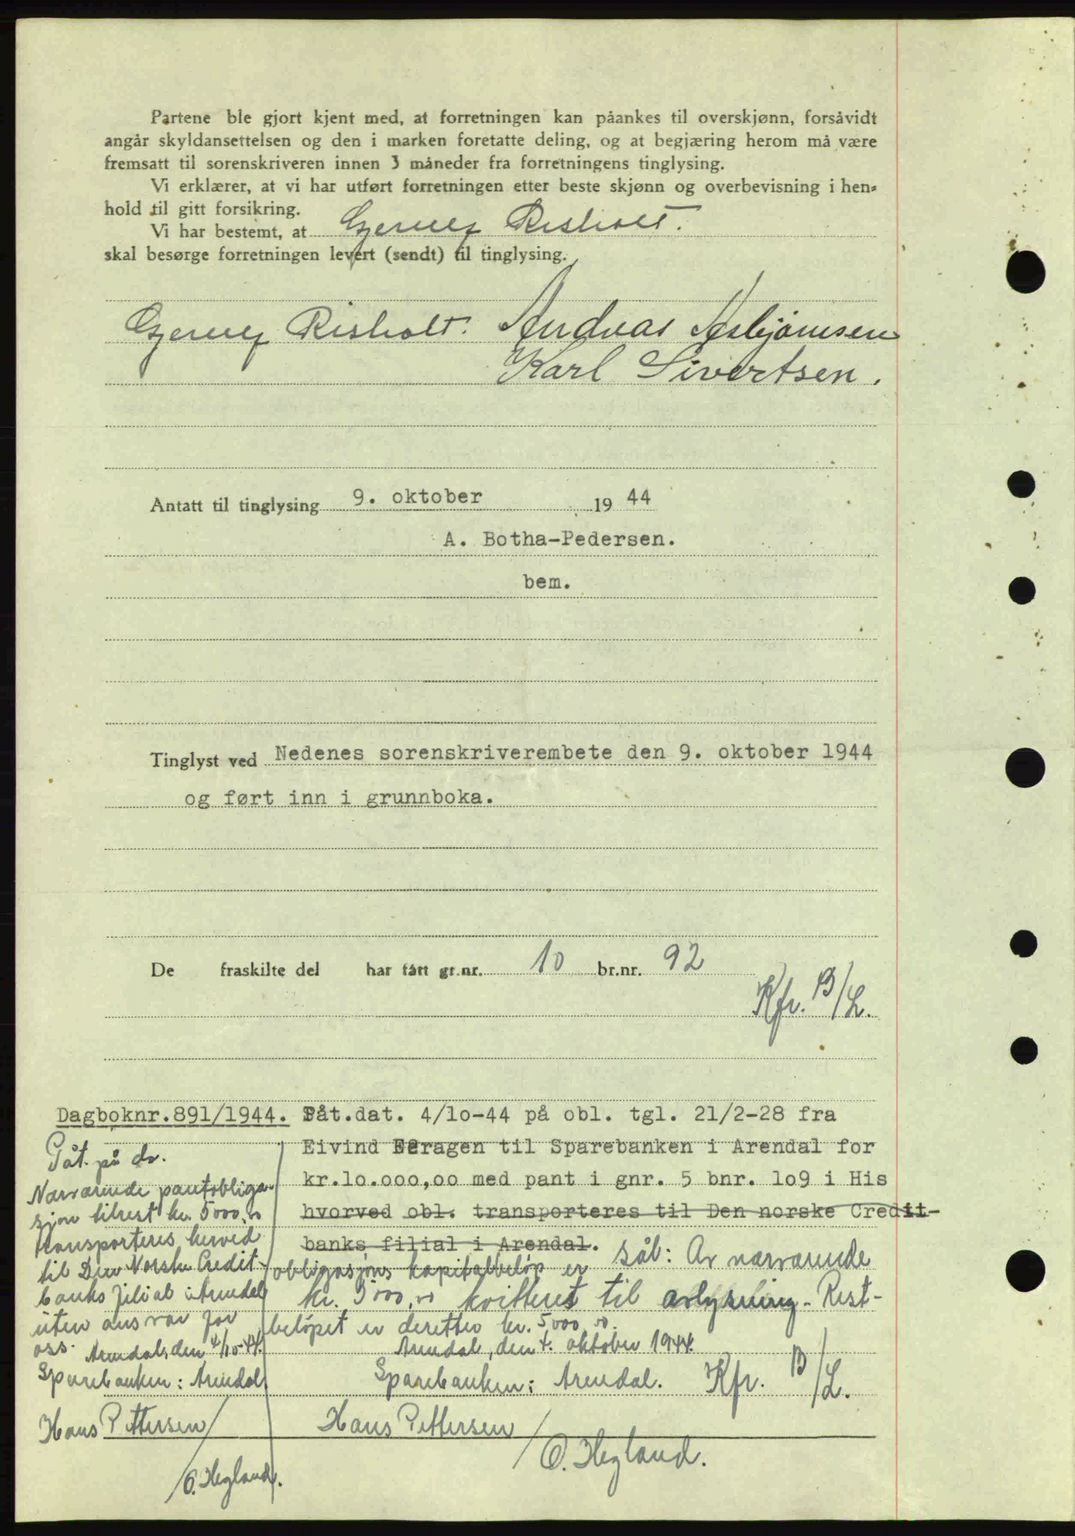 Partene ble gjort kjent med, at forretningen kan påankes til overskjønn, forsåvidt
angår skyldansettelsen og den i marken foretatte deling, og at begjæring herom må være
fremsatt til sorenskriveren innen 3 måneder fra forretningens tinglysing.
Vi erklærer, at vi har utført forretningen etter beste skjønn og overbevisning i hen-
hold til gitt forsikring.
Vi har bestemt, at Risholt.
skal besørge forretningen levert (sendt) til tinglysing.
Risholt. Andreas Asbjørnsen
Karl Sivertsen.
Antatt til tinglysing 9. oktober 19 44
A. Botha-Pedersen.
bem.
Tinglyst ved Nedenes sorenskriverembete den 9. oktober 1944
og ført inn i grunnboka.
De fraskilte del har fått gr.nr. 10 br.nr. 92
Kfr. B/L.
Dagboknr.891/1944. Påt.dat. 4/10-44 på obl. tgl. 21/2-28 fra
Eivind Feragen til Sparebanken i Arendal for
kr.lo.ooo,oo med pant i gnr. 5 bnr. lo9 i His
hvorved obl. transporteres til Den norske Credit-
banks filial i Arendal. sål: Av nærværende
obligasjons kapitalbeløp er
kr. 5000,00 kvitteret til avlysning. Rest-
beløpet er deretter kr. 5000,00.
Arendal, den 4. oktober 1944.
Sparebanken: Arendal. Kfr. B/L.
Hans Pettersen
/ O. Hegland.
Påt. på do.
Nærværende pantobliga-
sjon tilrest kr. 5000,00
transporteres herved
til Den Norske Credit-
banks filial i Arendal
uten ansvar for
oss. Arendal, den 4/10-44.
Sparebanken: Arendal
Hans Pettersen
/ O. Hegland.